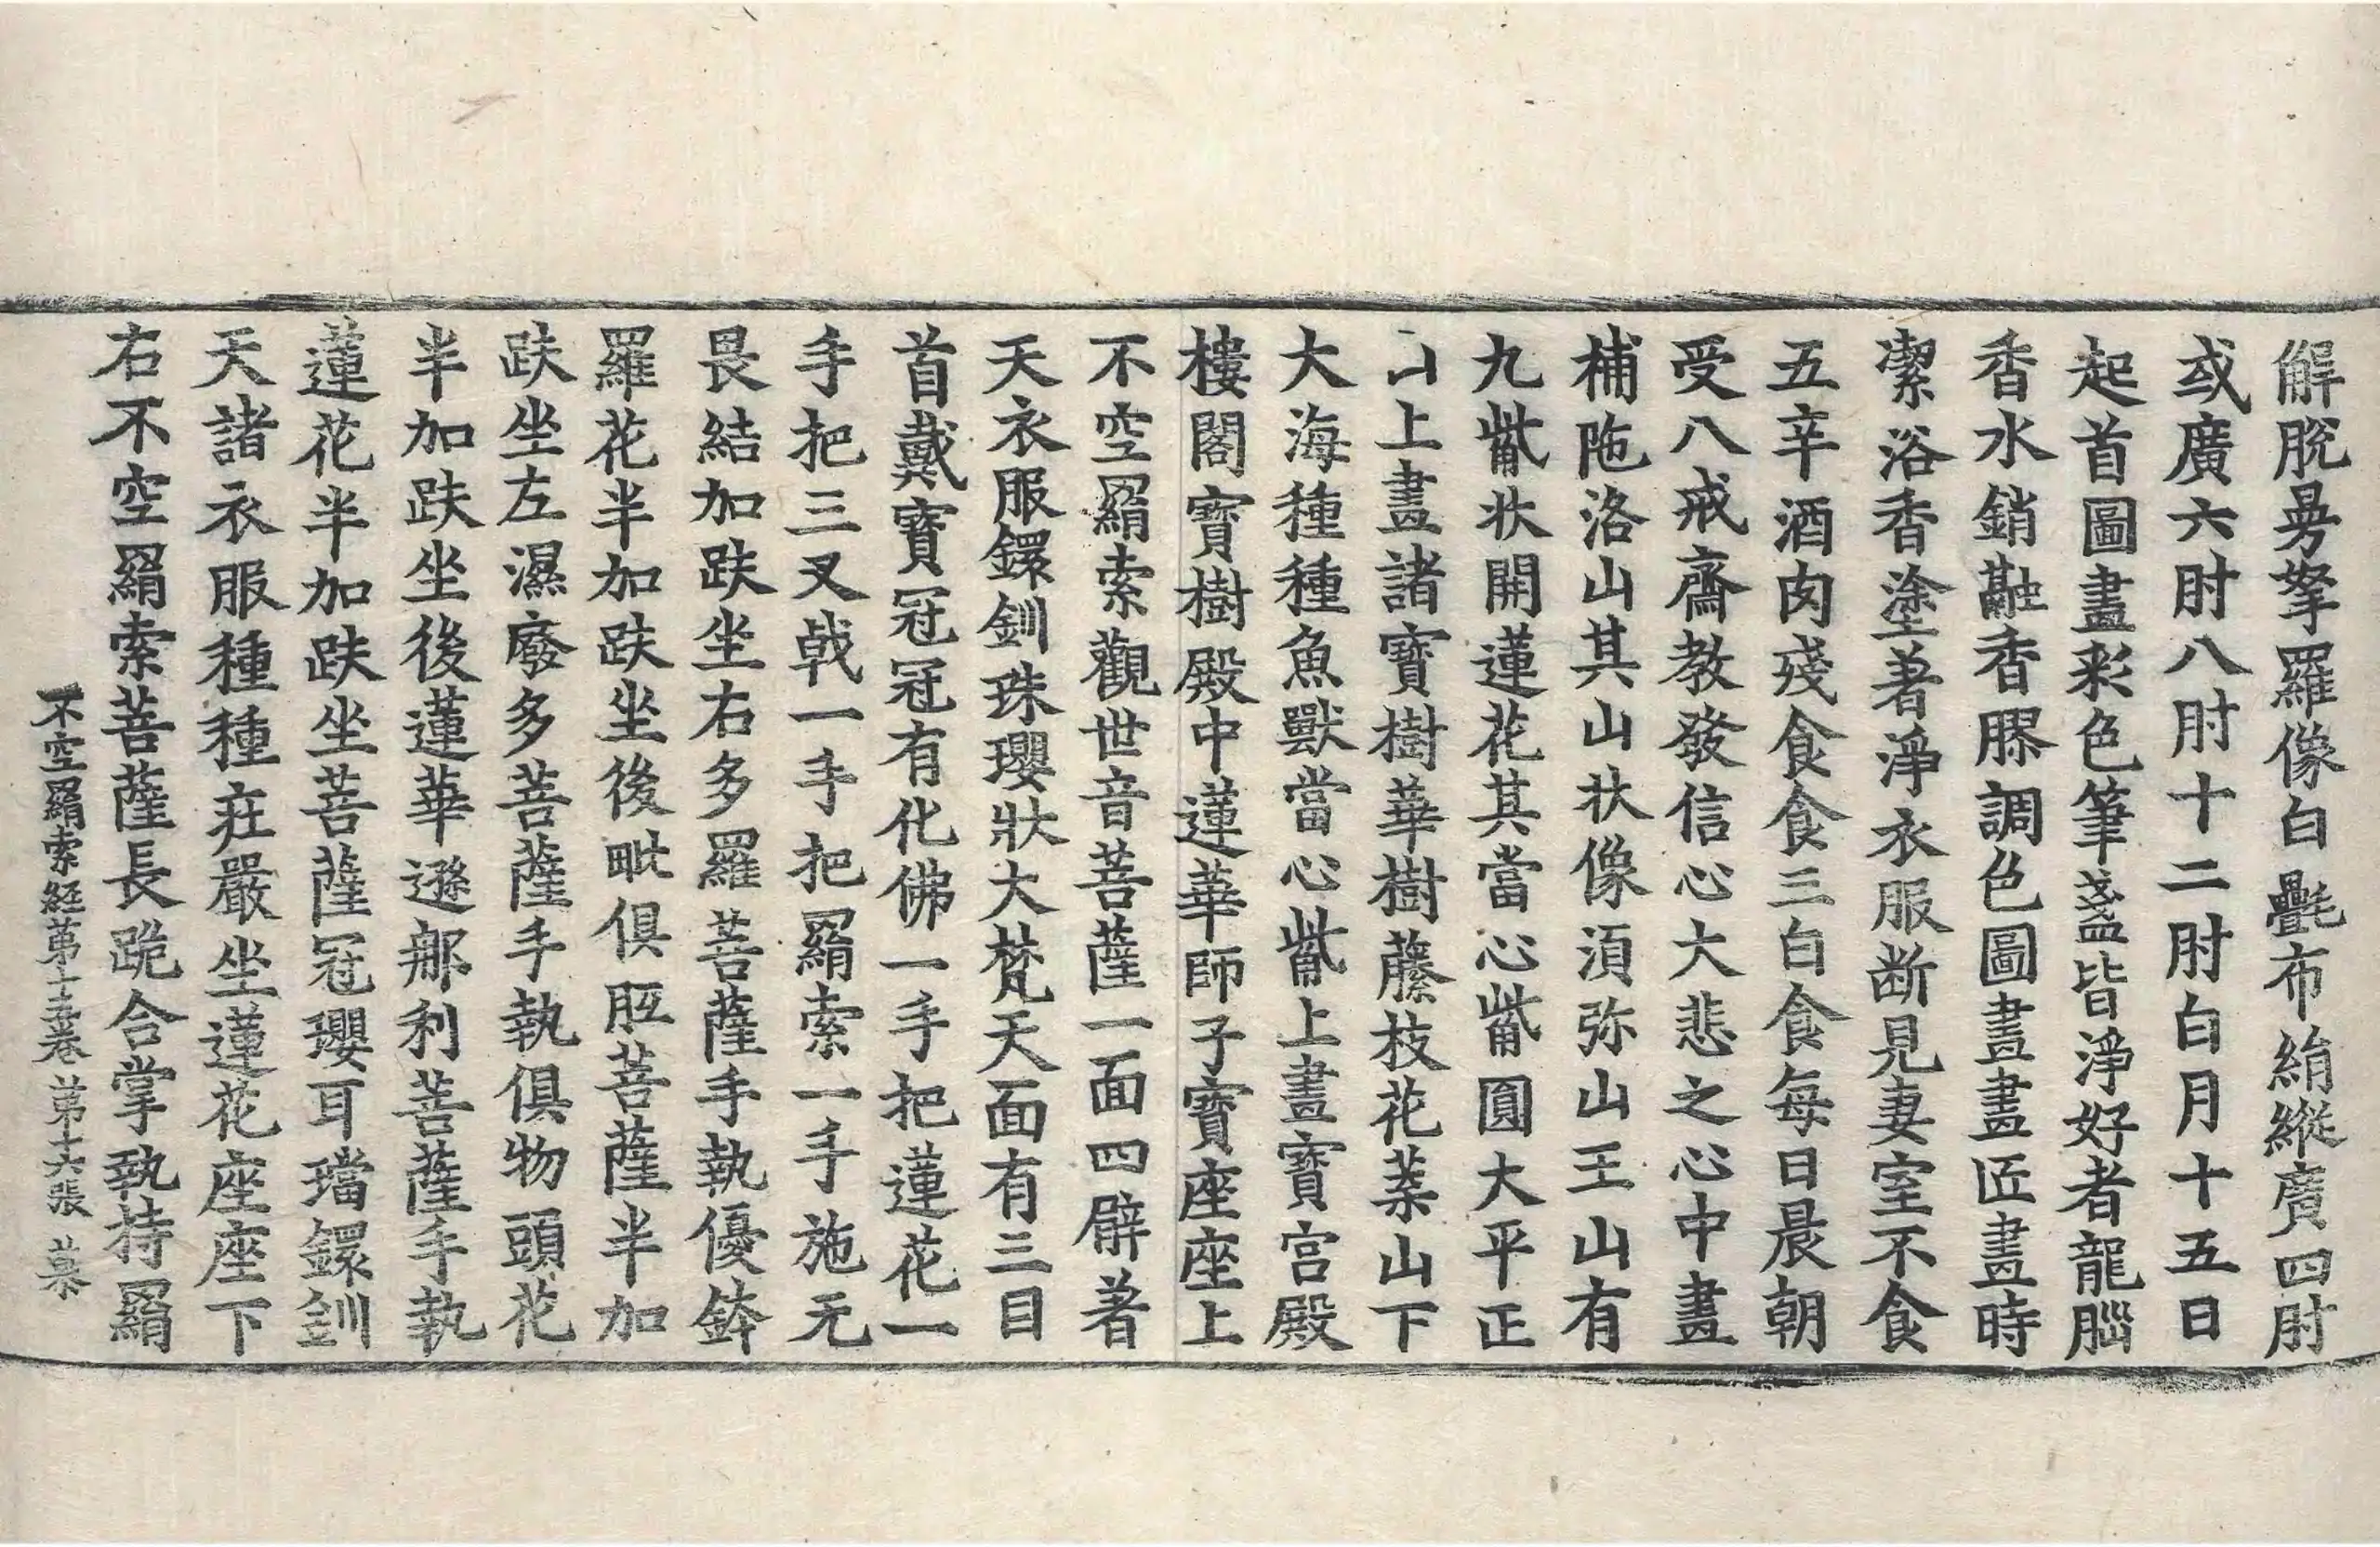 解脫曼拏羅像白㲲布絹縱廣四肘
或廣六肘八肘十二肘白月十五日
起首圖畫彩色筆盞皆淨好者龍腦
香水銷融香膠調色圖畫畫匠畫時
潔浴香塗著淨衣服断見妻室不食
五辛酒肉殘食食三白食每日晨朝
受八戒齋教發信心大悲之心中畫
補陁洛山其山状像須弥山王山有
九觜状開蓮花其當心觜圓大平正
山上畫諸寶樹華樹藤枝花菓山下
大海種種魚獸當心觜上畫寶宮殿
樓閣寶樹殿中蓮華師子寶座座上
不空羂索觀世音菩薩一面四臂著
天衣服鐶釧珠瓔狀大梵天面有三目
首戴寶冠冠有化佛一手把蓮花一
手把三叉戟一手把羂索一手施无
畏結加趺坐右多羅菩薩手執優鉢
羅花半加趺坐後毗俱胝菩薩半加
趺坐左濕廢多菩薩手執俱物頭花
半加趺坐後蓮華遜那利菩薩手執
蓮花半加趺坐菩薩冠瓔耳璫鐶釧
天諸衣服種種莊嚴坐蓮花座座下
右不空羂索菩薩長跪合掌執持羂
不空羂索經第十五卷 第十六張 慕